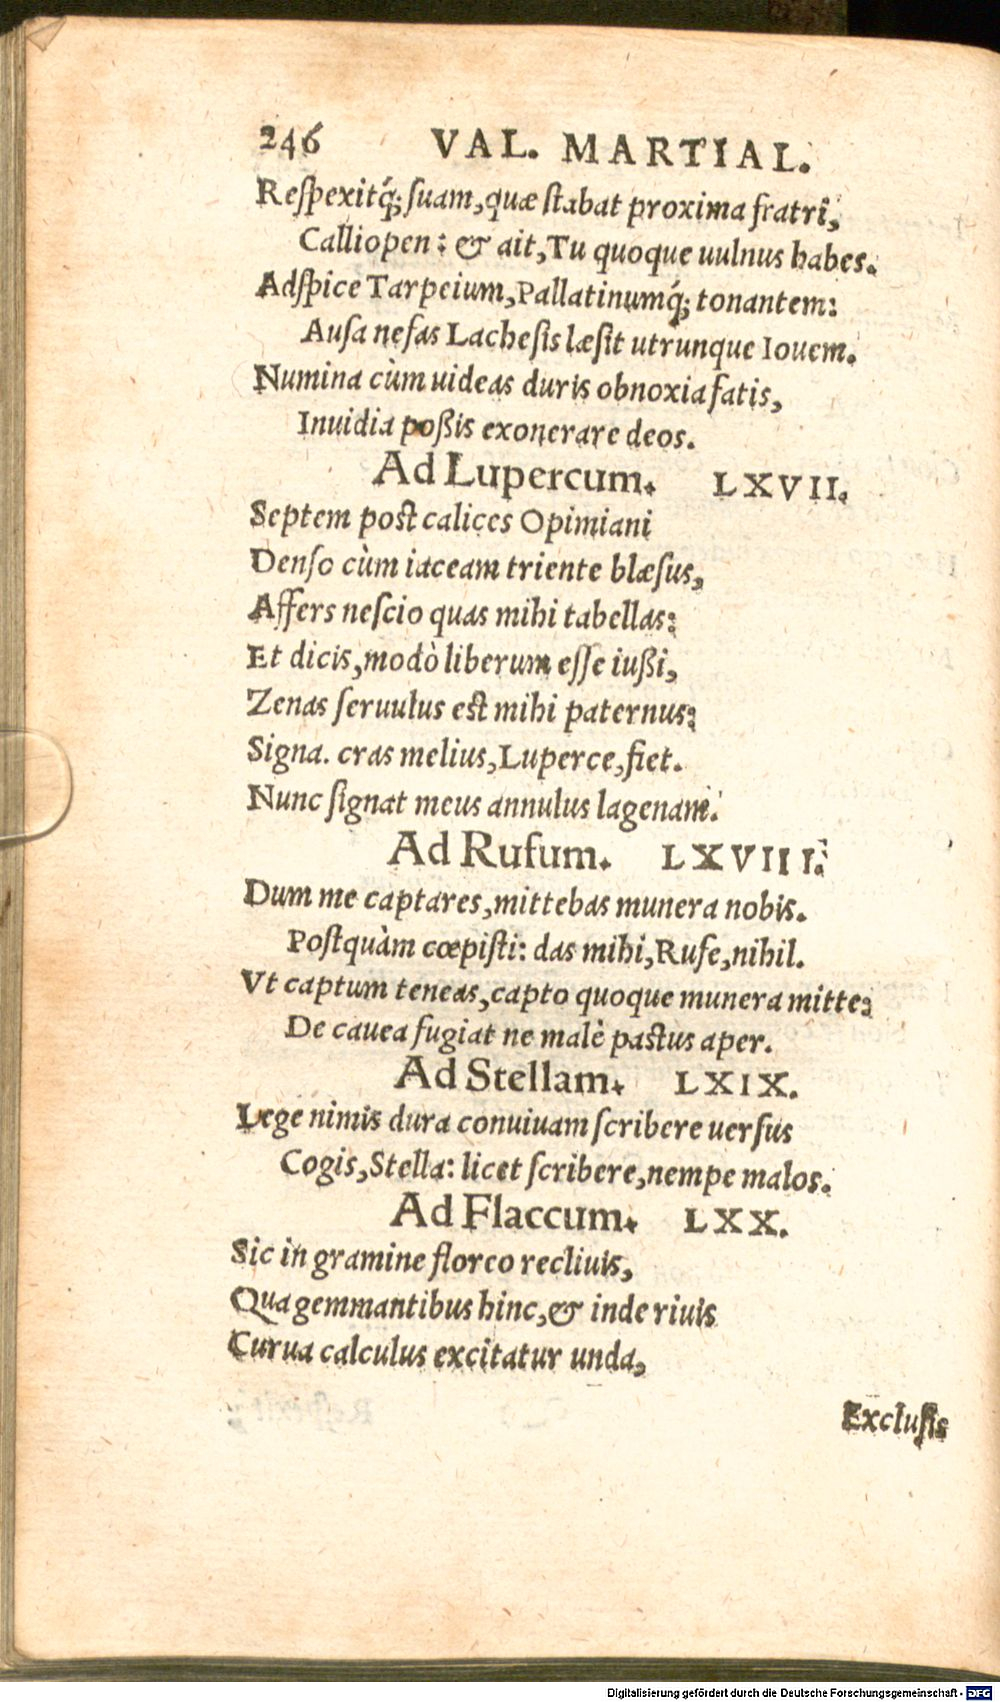 246 VAL. MARTIAL.
Reſpexitq́; ſuam, quæ ſtabat proxima fratri,
Calliopen: & ait, Tu quoque uulnus habes.
Adſpice Tarpeium, Pallatinumq́; tonantem:
Auſa nefas Lacheſis læſit utrunque Iouem.
Numina cùm uideas duris obnoxia fatis,
Inuidia poßis exonerare deos.
Ad Lupercum. LXVII.
Septem poſt calices Opimiani
Denſo cùm iaceam triente blæſus,
Affers neſcio quas mihi tabellas:
Et dicis, modò liberum eſſe iußi,
Zenas ſeruulus eſt mihi paternus:
Signa. cras melius, Luperce, fiet.
Nunc ſignat meus annulus lagenam.
Ad Rufum. LXVIII.
Dum me captares, mittebas munera nobis.
Poſtquàm cœpiſti: das mihi, Rufe, nihil.
Vt captum teneas, capto quoque munera mitte:
De cauea fugiat ne malè paſtus aper.
Ad Stellam. LXIX.
Lege nimis dura conuiuam ſcribere uerſus
Cogis, Stella: licet ſcribere, nempe malos.
Ad Flaccum. LXX.
Sic in gramine floreo recliuis,
Qua gemmantibus hinc, & inde riuis
Curua calculus excitatur unda,
Excluſis
Digitalisierung gefördert durch die Deutsche Forschungsgemeinschaft - DFG